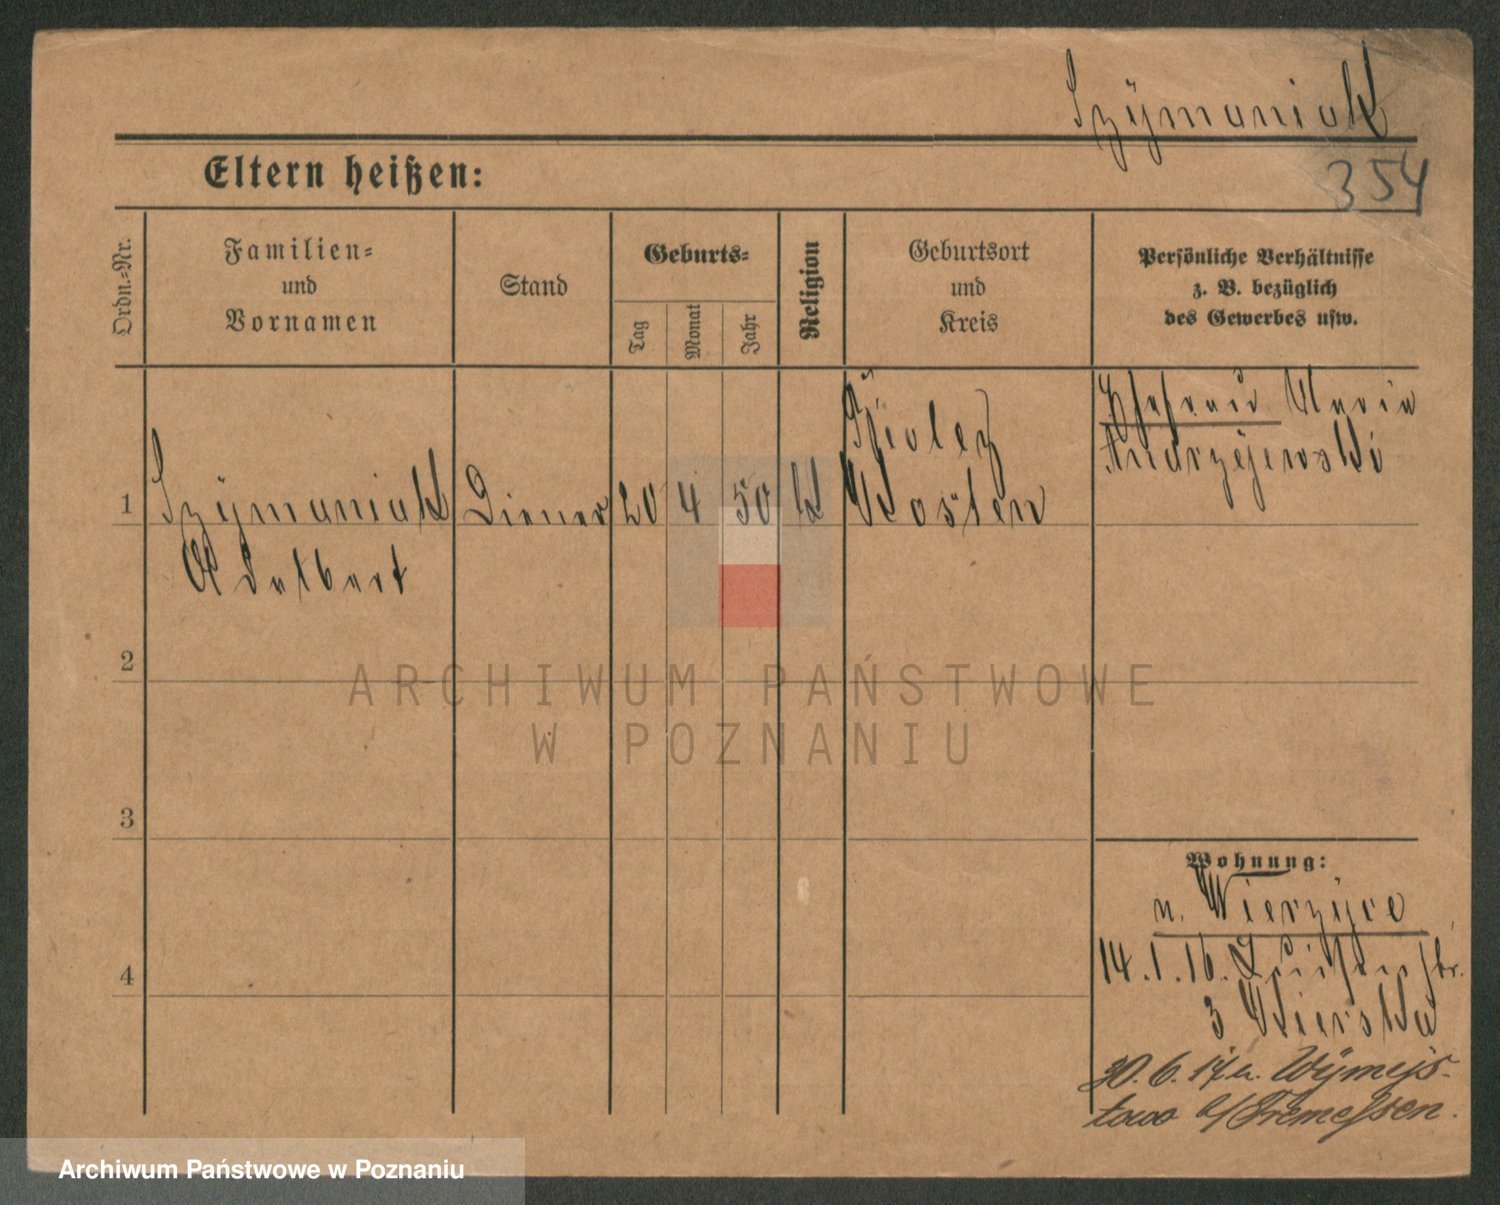 Szÿmaniak
354
Eltern heißen:
Ordn.-Nr.
Familien-
und
Vornamen
Stand
Geburts-
Tag
Monat
Jahr
Religion
Geburtsort
und
Kreis
Persönliche Verhältnisse
z. B. bezüglich
des Gewerbes usw.
1
Szÿmaniak
Adalbert
Diener
20
4
50
k
Kosten
Ehefrau Maria
Andrzÿjewski
2
3
4
Wohnung:
n. Wierzÿce
14.1.16.
3
30.6.17 n. Wÿmÿs-
towo b/Tremessen.
ARCHIWUM PAŃSTWOWE
W POZNANIU
Archiwum Państwowe w Poznaniu